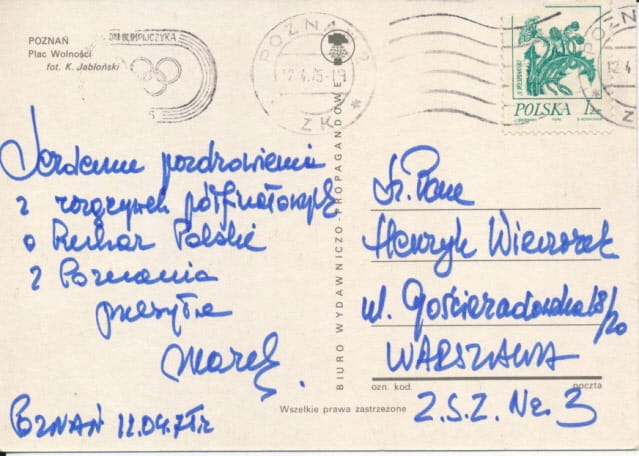 POZNAŃ
Plac Wolności
fot. K. Jabłoński
DNI OLIMPIJCZYKA
POZNAŃ 2
12.4.75-19
ZK
POLSKA 1
Serdeczne pozdrowienia
z rozgrywek półfinałowych
o Puchar Polski
z Poznania
przesyła
Marek
POZNAŃ 12.04.75r.
BIURO WYDAWNICZO-PROPAGANDOWE
Sz. Pan
Henryk Wieczorek
ul. Gościeradowska 18/20
WARSZAWA
ozn. kod. poczta
Z.S.Z. Nr. 3
Wszelkie prawa zastrzeżone